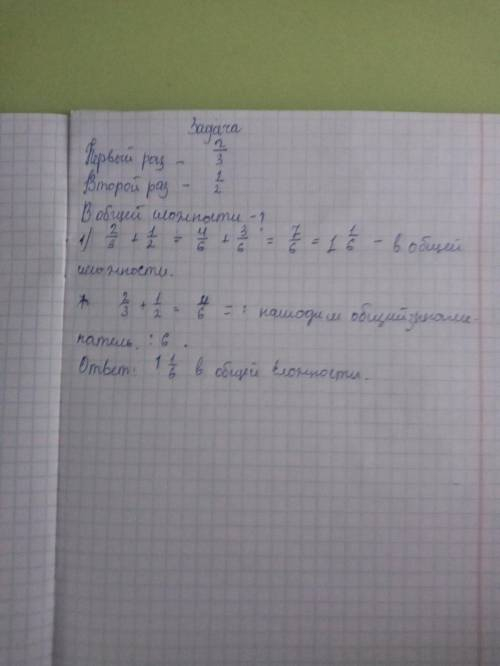 Задача
Первый раз - 2/3
Второй раз - 1/2
В общей сложности - ?
1) 2/3 + 1/2 = 4/6 + 3/6 = 7/6 = 1 1/6 - в общей
сложности.
* 2/3 + 1/2 = 4/6 = : находим общий знаме-
натель : 6 .
Ответ: 1 1/6 в общей сложности.